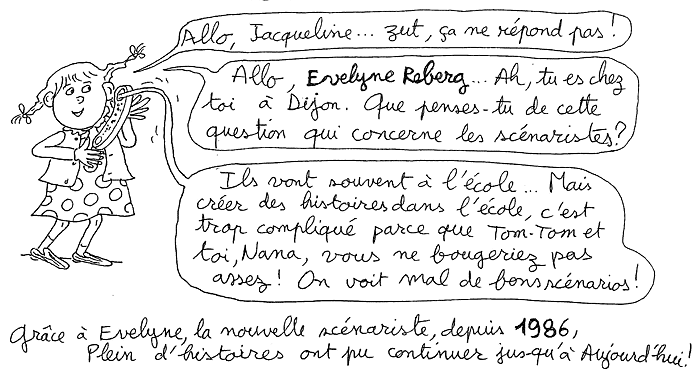 Allo, Jacqueline... zut, ça ne répond pas !
Allo, Evelyne Reberg... Ah, tu es chez
toi à Dijon. Que penses-tu de cette
question qui concerne les scénaristes ?
Ils vont souvent à l'école... Mais
créer des histoires dans l'école, c'est
trop compliqué parce que Tom-Tom et
toi, Nana, vous ne bougeriez pas
assez ! On voit mal de bons scénarios !
Grâce à Evelyne, la nouvelle scénariste, depuis 1986,
Plein d'histoires ont pu continuer jusqu'à Aujourd'hui !